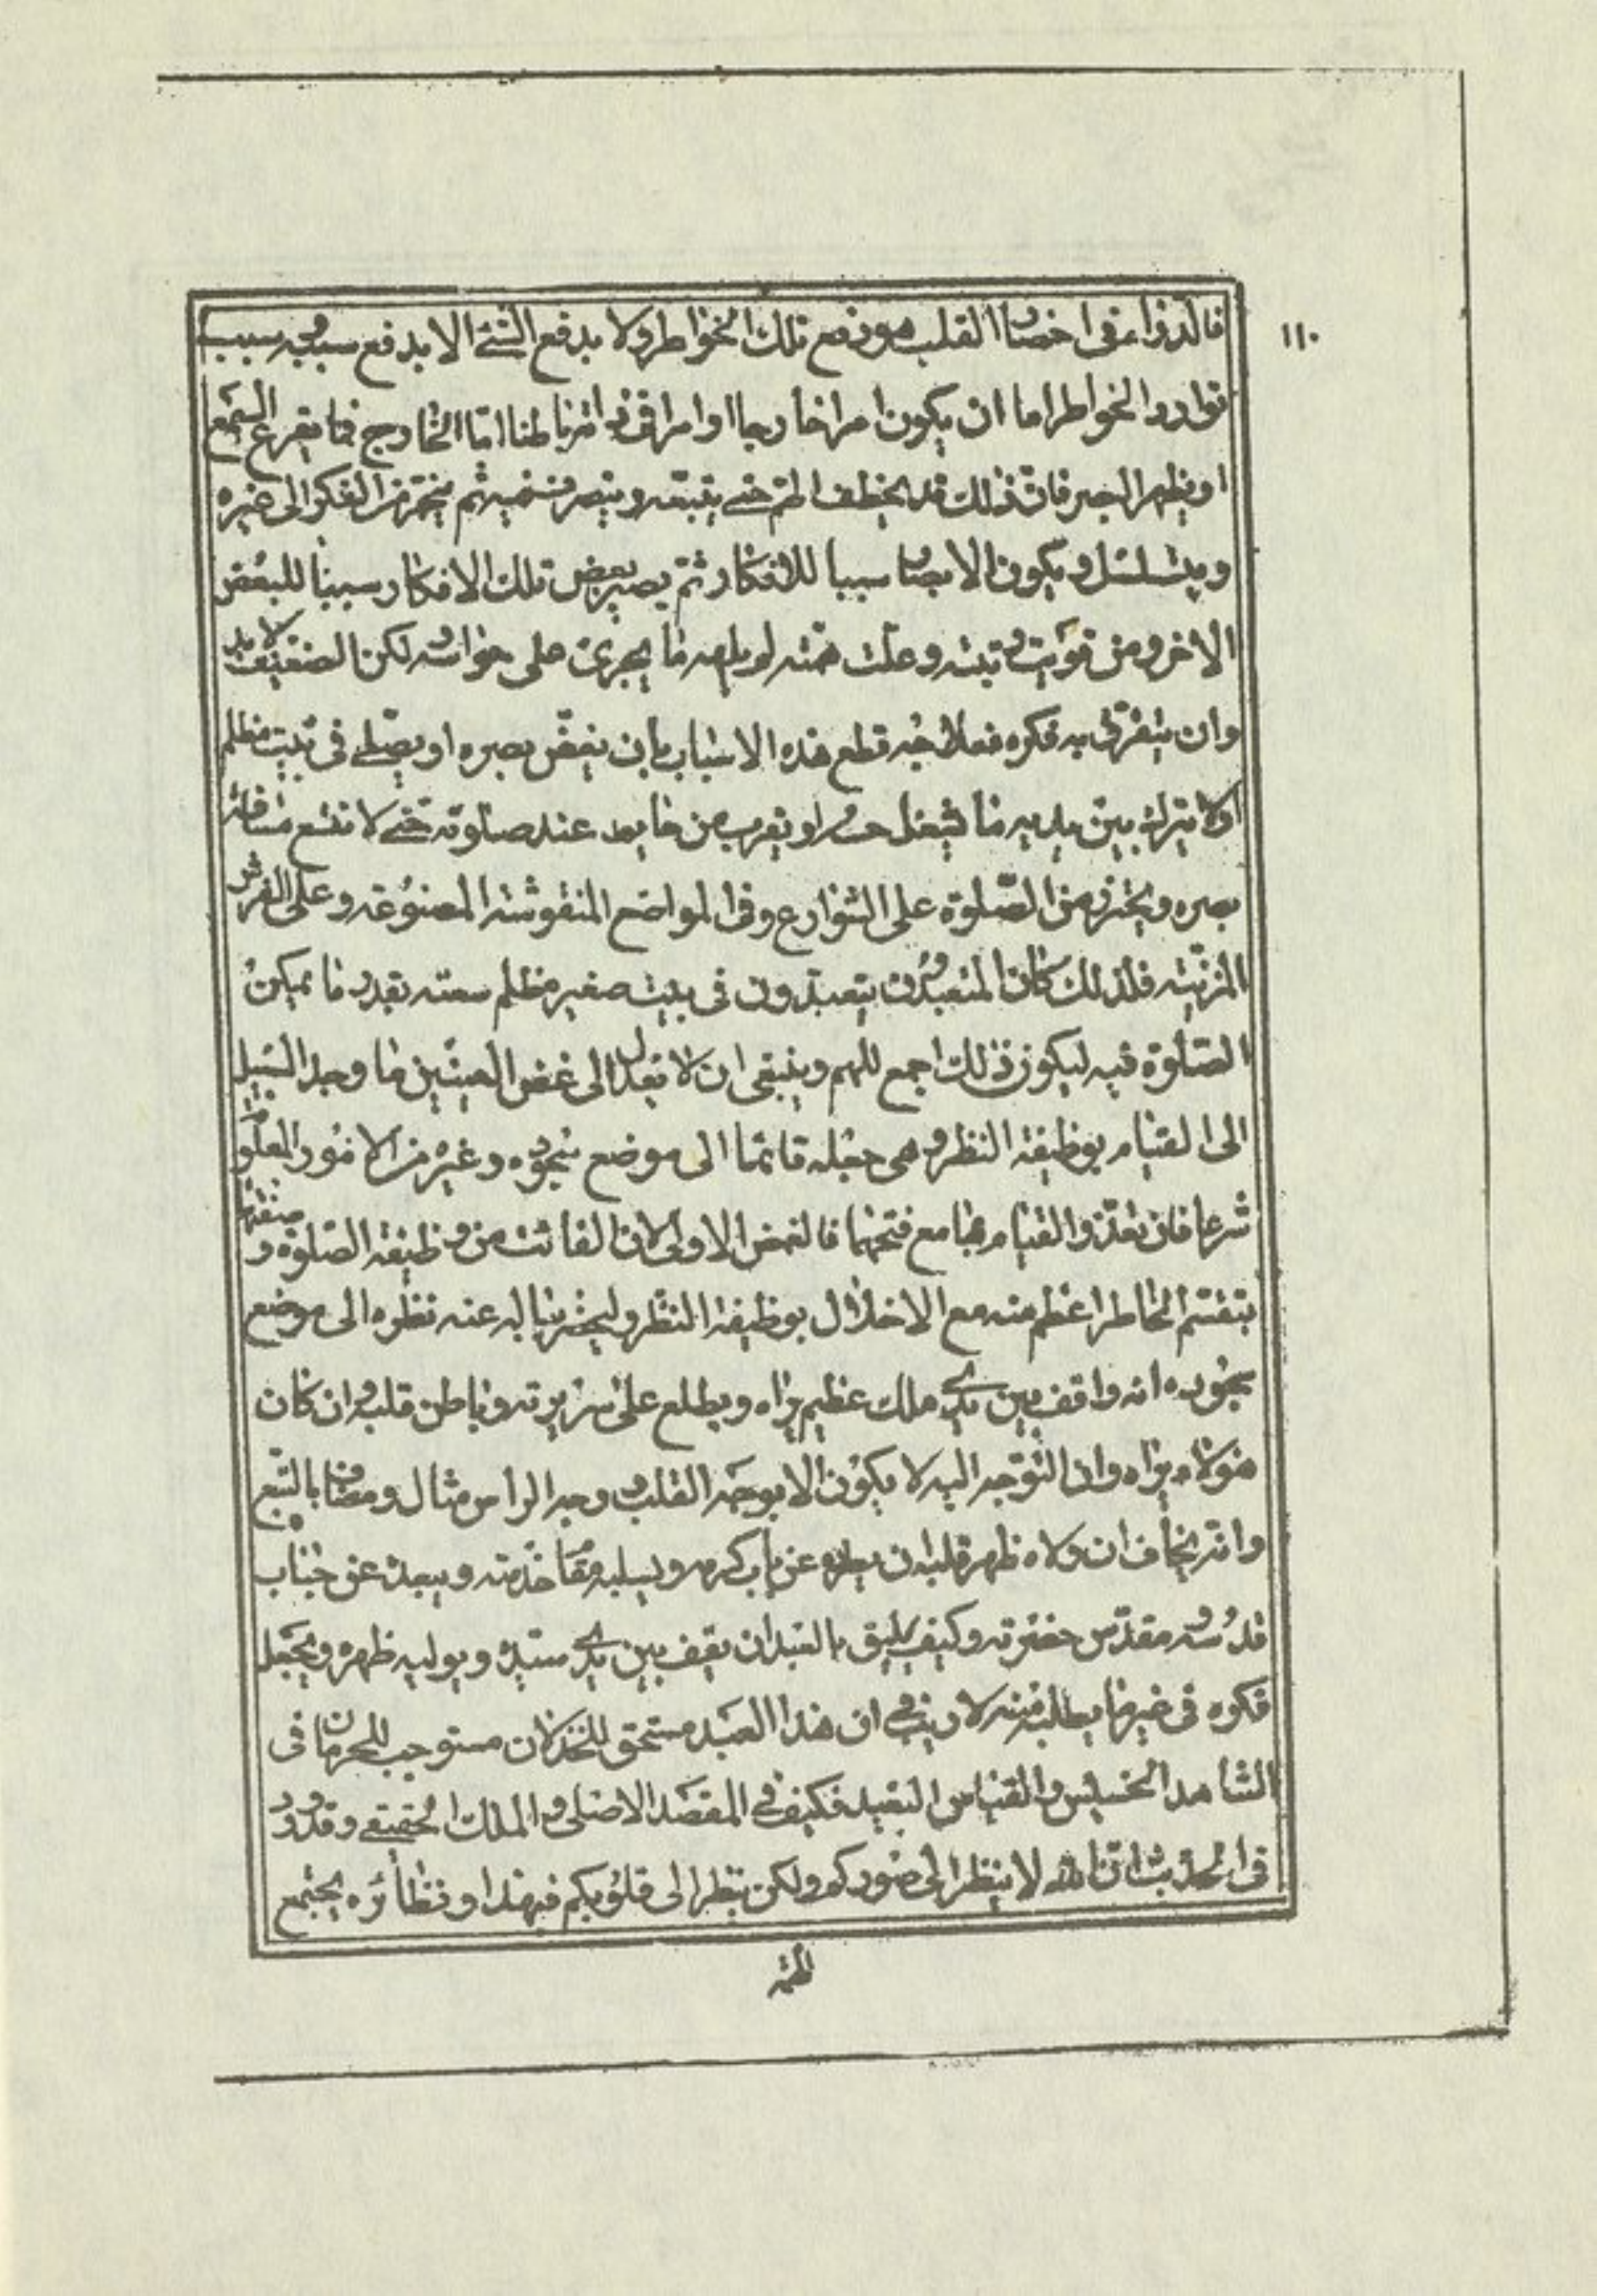 ١١٠
فالدواء فى احضار القلب هو دفع تلك الخواطر ولا يدفع الشئ الا بدفع سببه وسبب
توارد الخواطر اما ان يكون امرا خارجا او امرا فى ذاته باطنا اما الخارج فما يقرع السمع
او يظهر للبصر فان ذلك قد يخطف الهم حتى يتبعه ويتصرف فيه ثم ينجر منه الفكر الى غيره
ويتسلسل ويكون الابصار سببا للافكار ثم يصير بعض تلك الافكار سببا للبعض
الاخر ومن قويت رتبته وعلت همته لم يلهه ما يجرى على حواسه لكن الضعيف لا بد
وان يتفرق به فكره فعلاجه قطع هذه الاسباب بان يغض بصره او يصلى فى بيت مظلم
او لا يترك بين يديه ما يشغل حسه او يقرب من حايط عند صلوته حتى لا تتسع مسافة
بصره ويحترز من الصلوة على الشوارع وفى المواضع المنقوشة المصنوعة وعلى الفرش
المزينة فلذلك كان المتعبدون يتعبدون فى بيت صغير مظلم سعته بقدر ما يمكن
الصلوة فيه ليكون ذلك اجمع للهم وينبغى ان لا يعدل الى غض العينين ما وجد السبيل
الى القيام بوظيفة النظر وهى جعله قائما الى موضع سجوده وغيره من الامور المعلومة
شرعا فان تعذر القيام بها مع فتحهما فالغض اولى لان الفائت من وظيفة الصلوة وصفتها
بتقسم الخاطر اعظم منه مع الاخلال بوظيفة النظر وليحضر بباله عند نظره الى موضع
سجوده انه واقف بين يدى ملك عظيم يراه ويطلع على سريرته وباطن قلبه وان كان
هو لا يراه وان التوجه اليه لا يكون الا بوجه القلب ووجه الرأس مثال ومضاف بالتبع
وانه يخاف ان ولاه ظهر قلبه ان يطرده عن باب كرمه ويسلبه مقام خدمته ويبعده عن جناب
قدسه ومقدس حضرته وكيف يليق بالعبد ان يقف بين يدى سيده ويوليه ظهره ويجعل
فكره فى غير ما يطلبه منه لا ريب فى ان هذا العبد مستحق للخذلان مستوجب للحرمان فى
الشاهد الخسيس والقياس البعيد فكيف فى المقصد الاصلى والملك الحقيقى وقد ورد
فى الحديث ان الله لا ينظر الى صوركم ولكن ينظر الى قلوبكم فبهذا ونظائره يجتمع
الهم